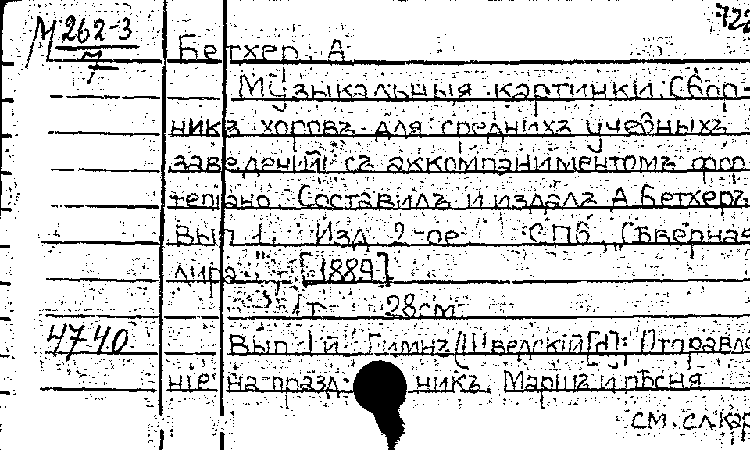 М 262-3
7
722
Бетхер, А
Музыкальныя картинки. Сбор-
никъ хоровъ для среднихъ учебныхъ
заведений съ аккомпаниментомъ фор
тепiано. Составилъ и издалъ А Бетхеръ
Вып 1. Изд 2-ое СПб, „Съверная
лира", [1889]
1 т 28см
4740 Вып 1й Гимнъ (Шведскiй[d]; Отправле
нiе на празд- никъ. Маршъ и пѣсня
см. сл. кар